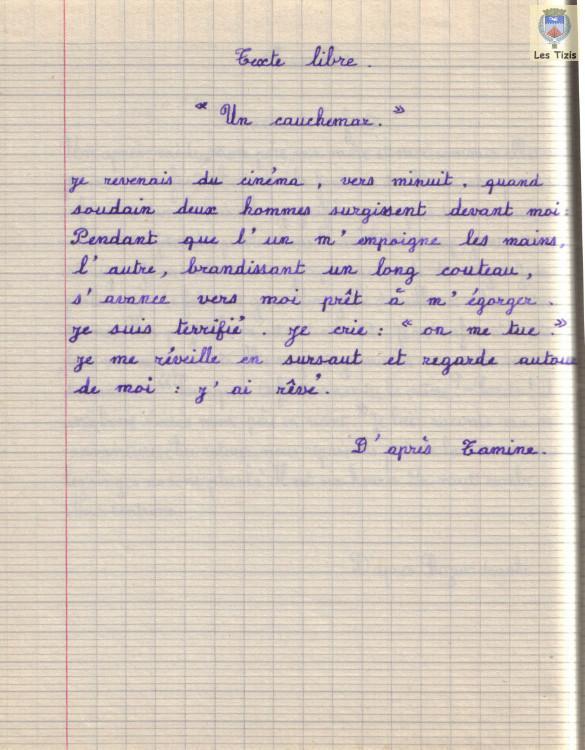 Les Tizis
Texte libre.
"Un cauchemar."
je revenais du cinéma, vers minuit, quand
soudain deux hommes surgissent devant moi:
Pendant que l'un m'empoigne les mains,
l'autre, brandissant un long couteau,
s'avance vers moi prêt à m'égorger.
je suis terrifié. je crie: "on me tue."
je me réveille en sursaut et regarde autour
de moi: j'ai rêvé.
D'après Tamine.